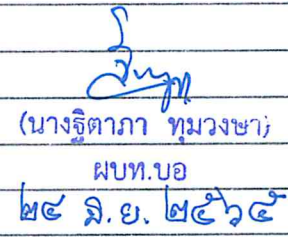 (นางฐิตาภา ทุมวงษา)
ผบท.บอ
๒๔ มิ.ย. ๒๕๖๕